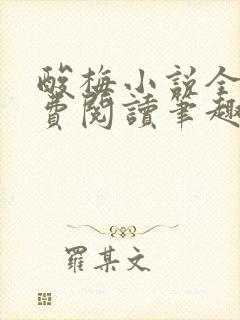 酸梅小说全
費閱讀筆趣
羅某文